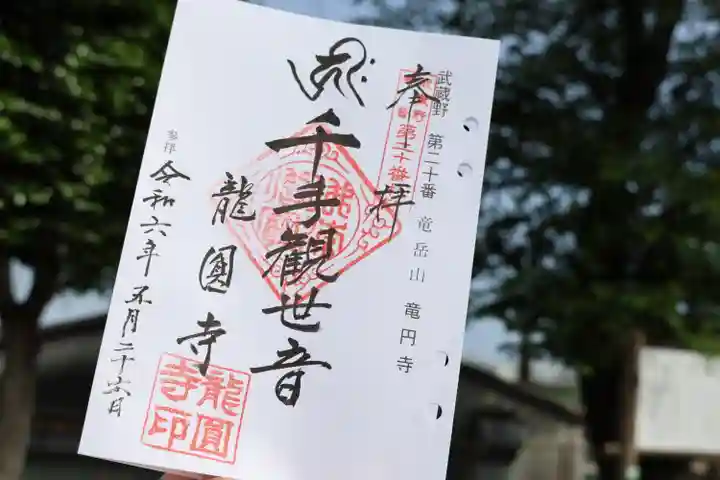 武蔵野 第二十番 竜岳山 竜円寺
奉拝
第二十番
千手観世音
龍圓寺
龍圓寺印
参拝
令和六年 五月二十六日